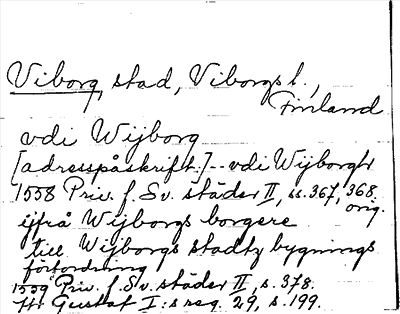 Viborg, stad, Viborgs l.,
Finland
vdi Wijborg
[adresspåskrift.] -- vdi Wijborgh
1558 Priv. f. Sv. städer II, ss. 367, 368,
orig.
ijfrå Wijborgs borgere
till Wijborgs stadtz bygnings
förfordning
1559 Priv. f. Sv. städer II, s. 378.
Gustaf I:s reg. 29, s. 199.